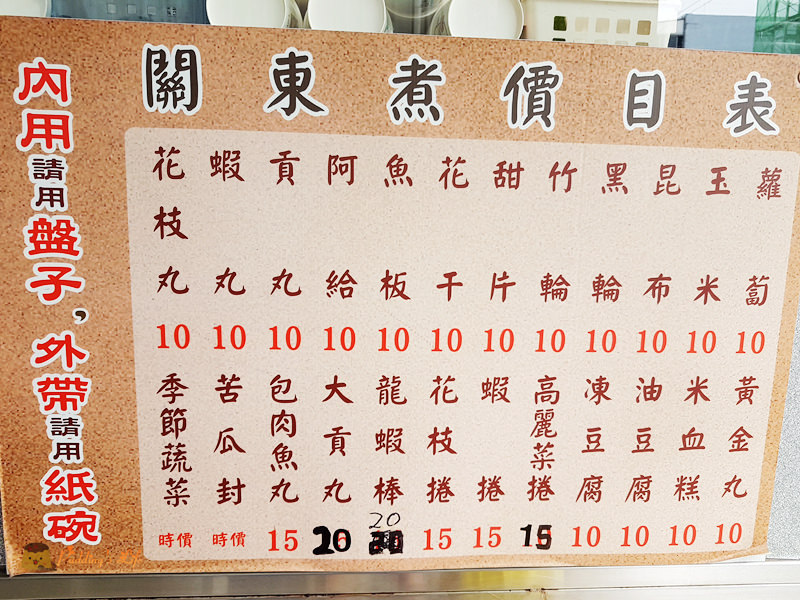 關東煮價目表
內用請用盤子，外帶請用紙碗
蘿蔔 10
玉米 10
昆布 10
黑輪 10
竹輪 10
甜片 10
花干 10
魚板 10
阿給 10
貢丸 10
蝦丸 10
花枝丸 10
黃金丸 10
米血糕 10
油豆腐 10
凍豆腐 10
高麗菜捲 15
蝦捲 15
花枝捲 15
龍蝦棒 20
大貢丸 20
包肉魚丸 15
苦瓜封 時價
季節蔬菜 時價